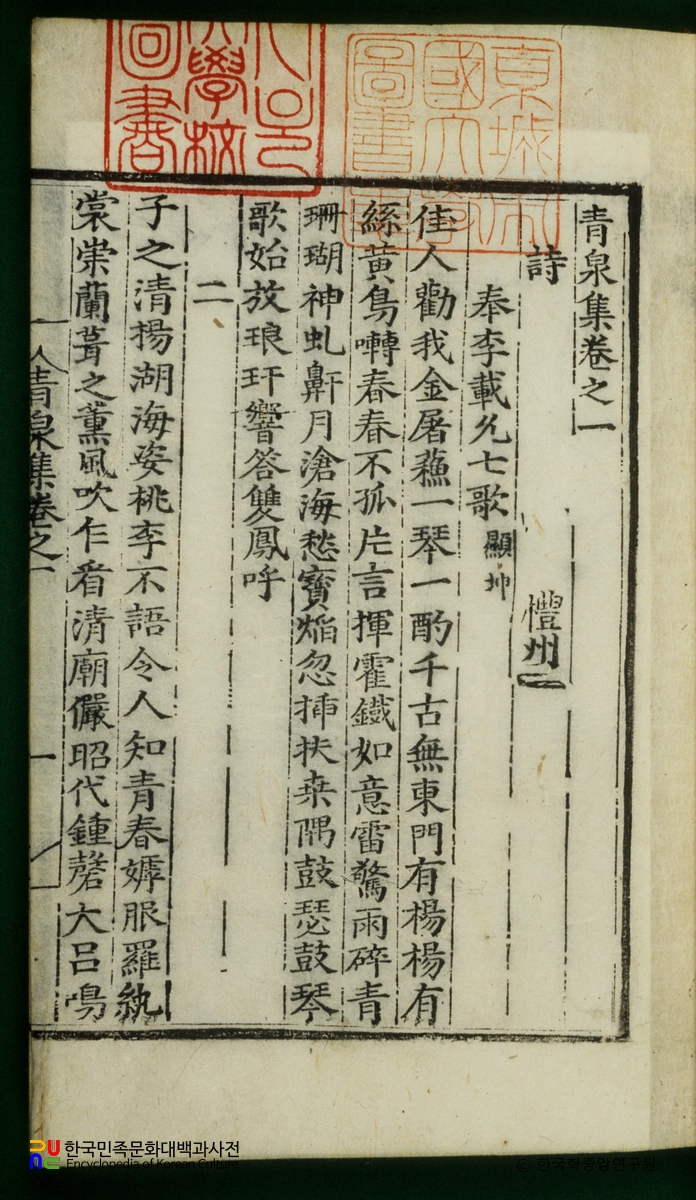 青泉集卷之一
詩
奉李載允七歌 顯坤
佳人勸我金屠蘓一琴一酌千古無東門有楊楊有
絲黃鳥囀春春不孤片言揮霍鐵如意雷驚雨碎青
珊瑚神虬鼾月滄海愁寶焰忽揷扶桒隅鼓瑟鼓琴
歌始放琅玕響答雙鳳呼
二
子之清揚湖海姿桃李不語令人知青春嫭服羅紈
裳崇蘭葺之薰風吹乍看清廟儼昭代鍾磬大呂鳴
青泉集卷之一
一
圖書
한국민족문화대백과사전
Encyclopedia of Korean Culture
© 한국학중앙연구원